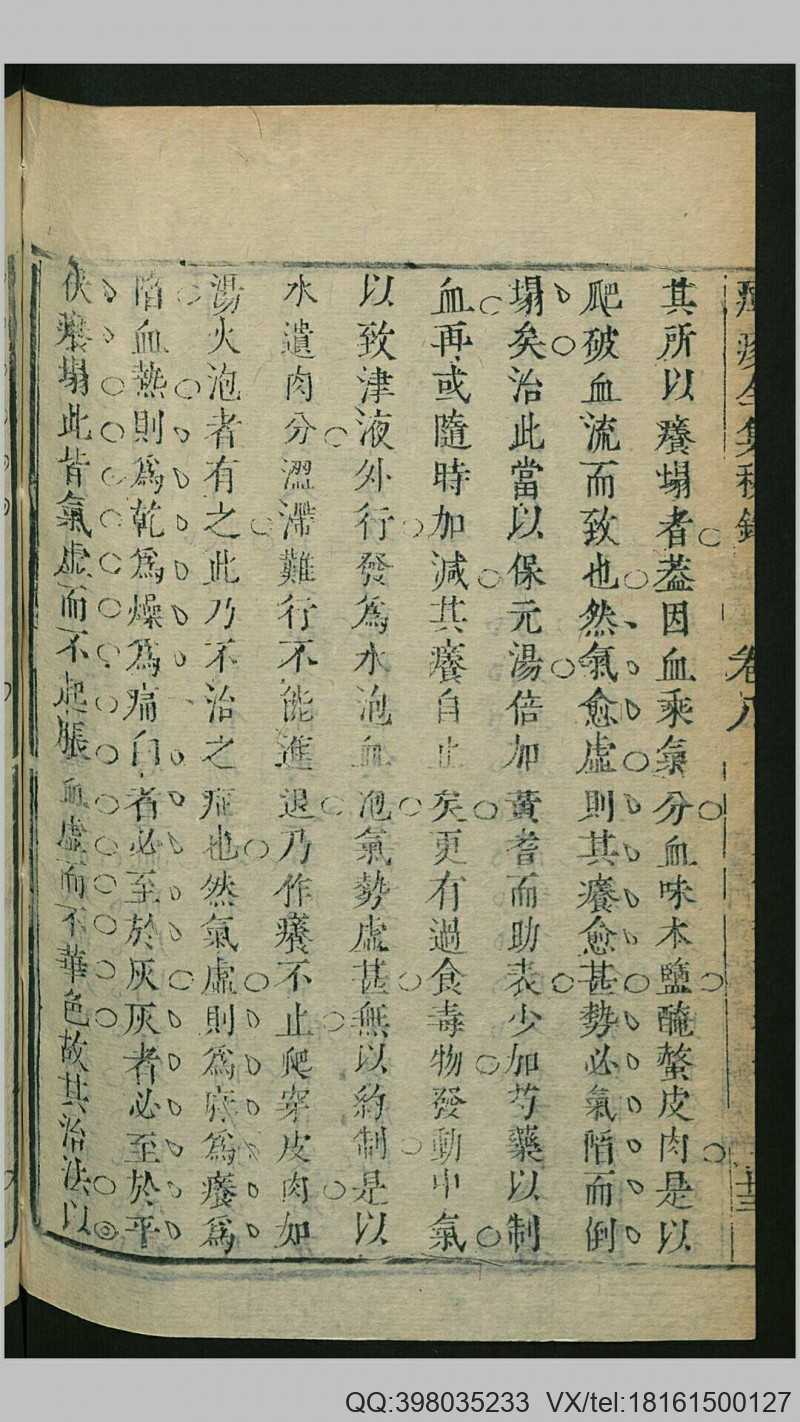 卷八
其所以癢塌者蓋因血乘氣分血味本鹽醃螫皮肉是以
爬破血流而致也然氣愈虛則其癢愈甚勢必氣陷而倒
塌矣治此當以保元湯倍加黃耆而助表少加芍藥以制
血再或隨時加減其癢自止矣更有過食毒物發動中氣
以致津液外行發為水泡血泡氣勢虛甚無以約制是以
水遺肉分澀滯難行不能進退乃作癢不止爬穿皮肉如
湯火泡者有之此乃不治之症也然氣虛則為癢為
陷血熱則為乾為燥為痛白者必至於灰灰者必至於平
伏癢塌此皆氣虛而不起脹血虛而不華色故其治法以
QQ:398035233 VX/tel:18161500127